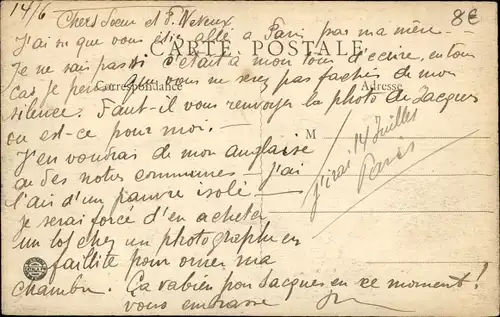 14/6
Chers Soeur et P. Neveux
8€
J'ai su que vous étiez allé à Paris par ma mère. -
CARTE POSTALE
Je ne sais pas si c'était à mon tour d'écrire, en tous
Correspondance
Adresse
cas je pense que vous ne serez pas fachés de mon
silence. Faut-il vous renvoyer la photo de Jacques
ou est-ce pour moi. -
M
J'en voudrais de mon anglaise
ou des notres communes - j'ai
l'air d'un pauvre isolé -
je serai forcé d'en acheter
un lot chez un photographe en
faillite pour orner ma
chambre. Ça va bien pour Jacques en ce moment!
vous embrasse
j'irai 14 Juillet
Paris